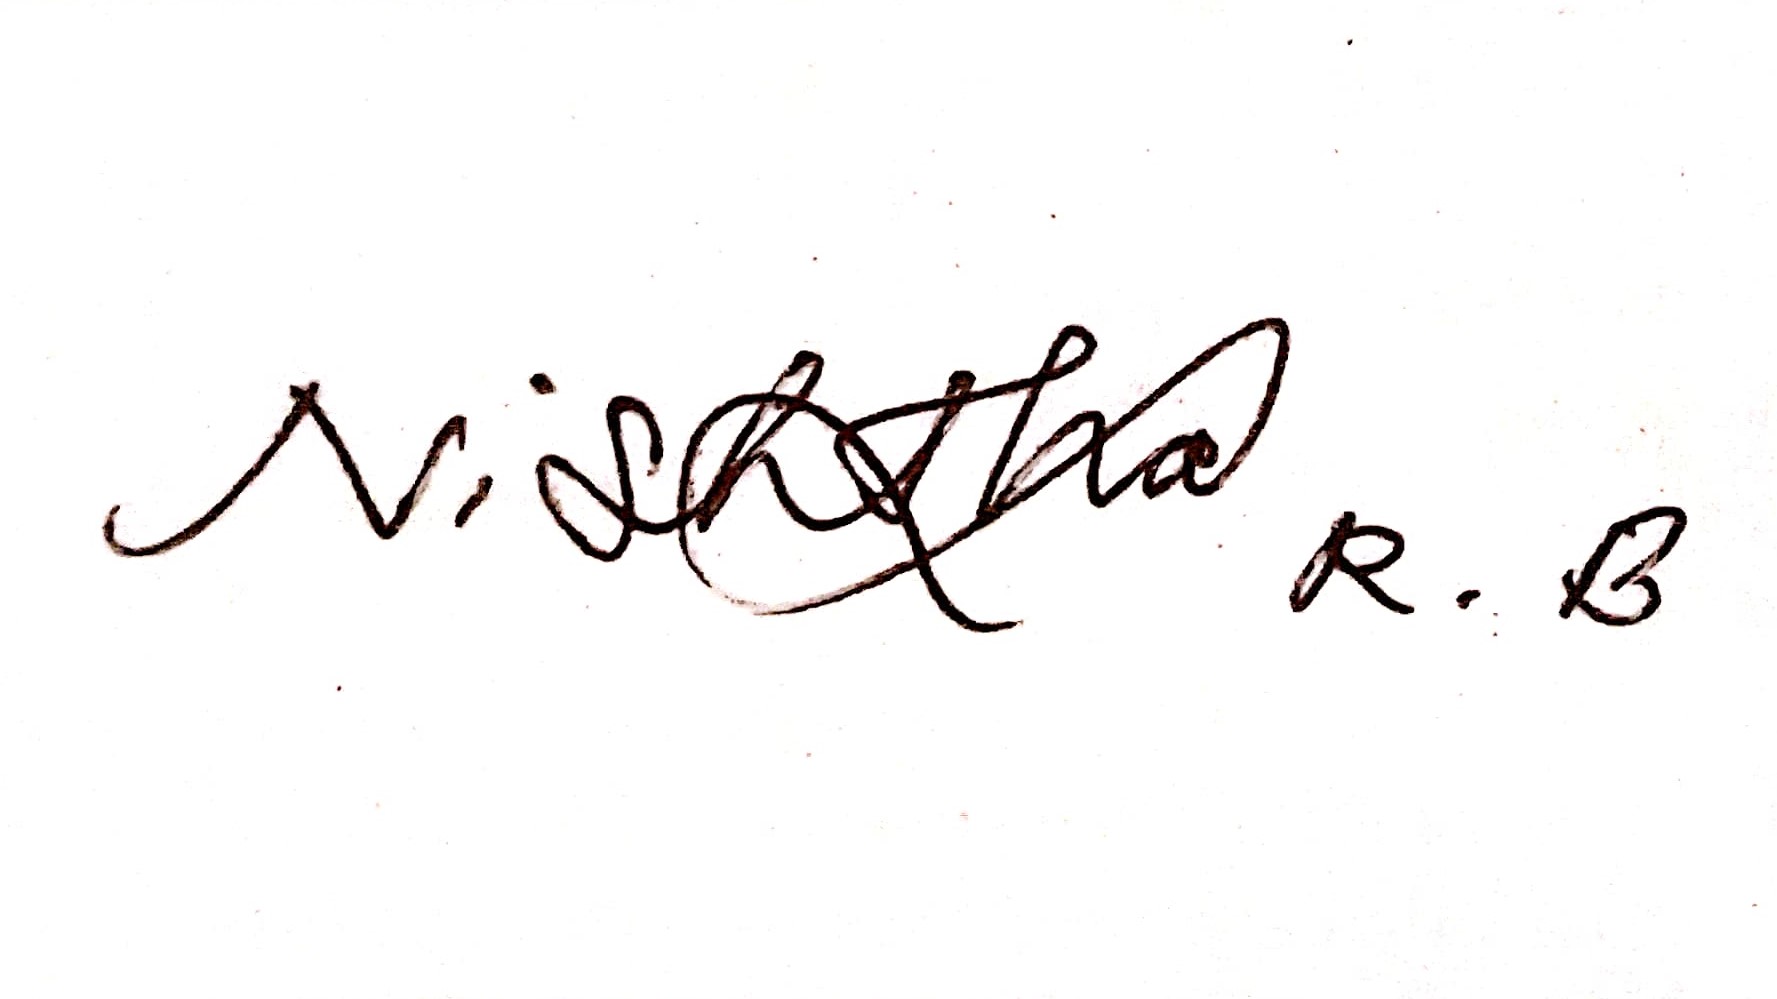 Nishtha
R. B